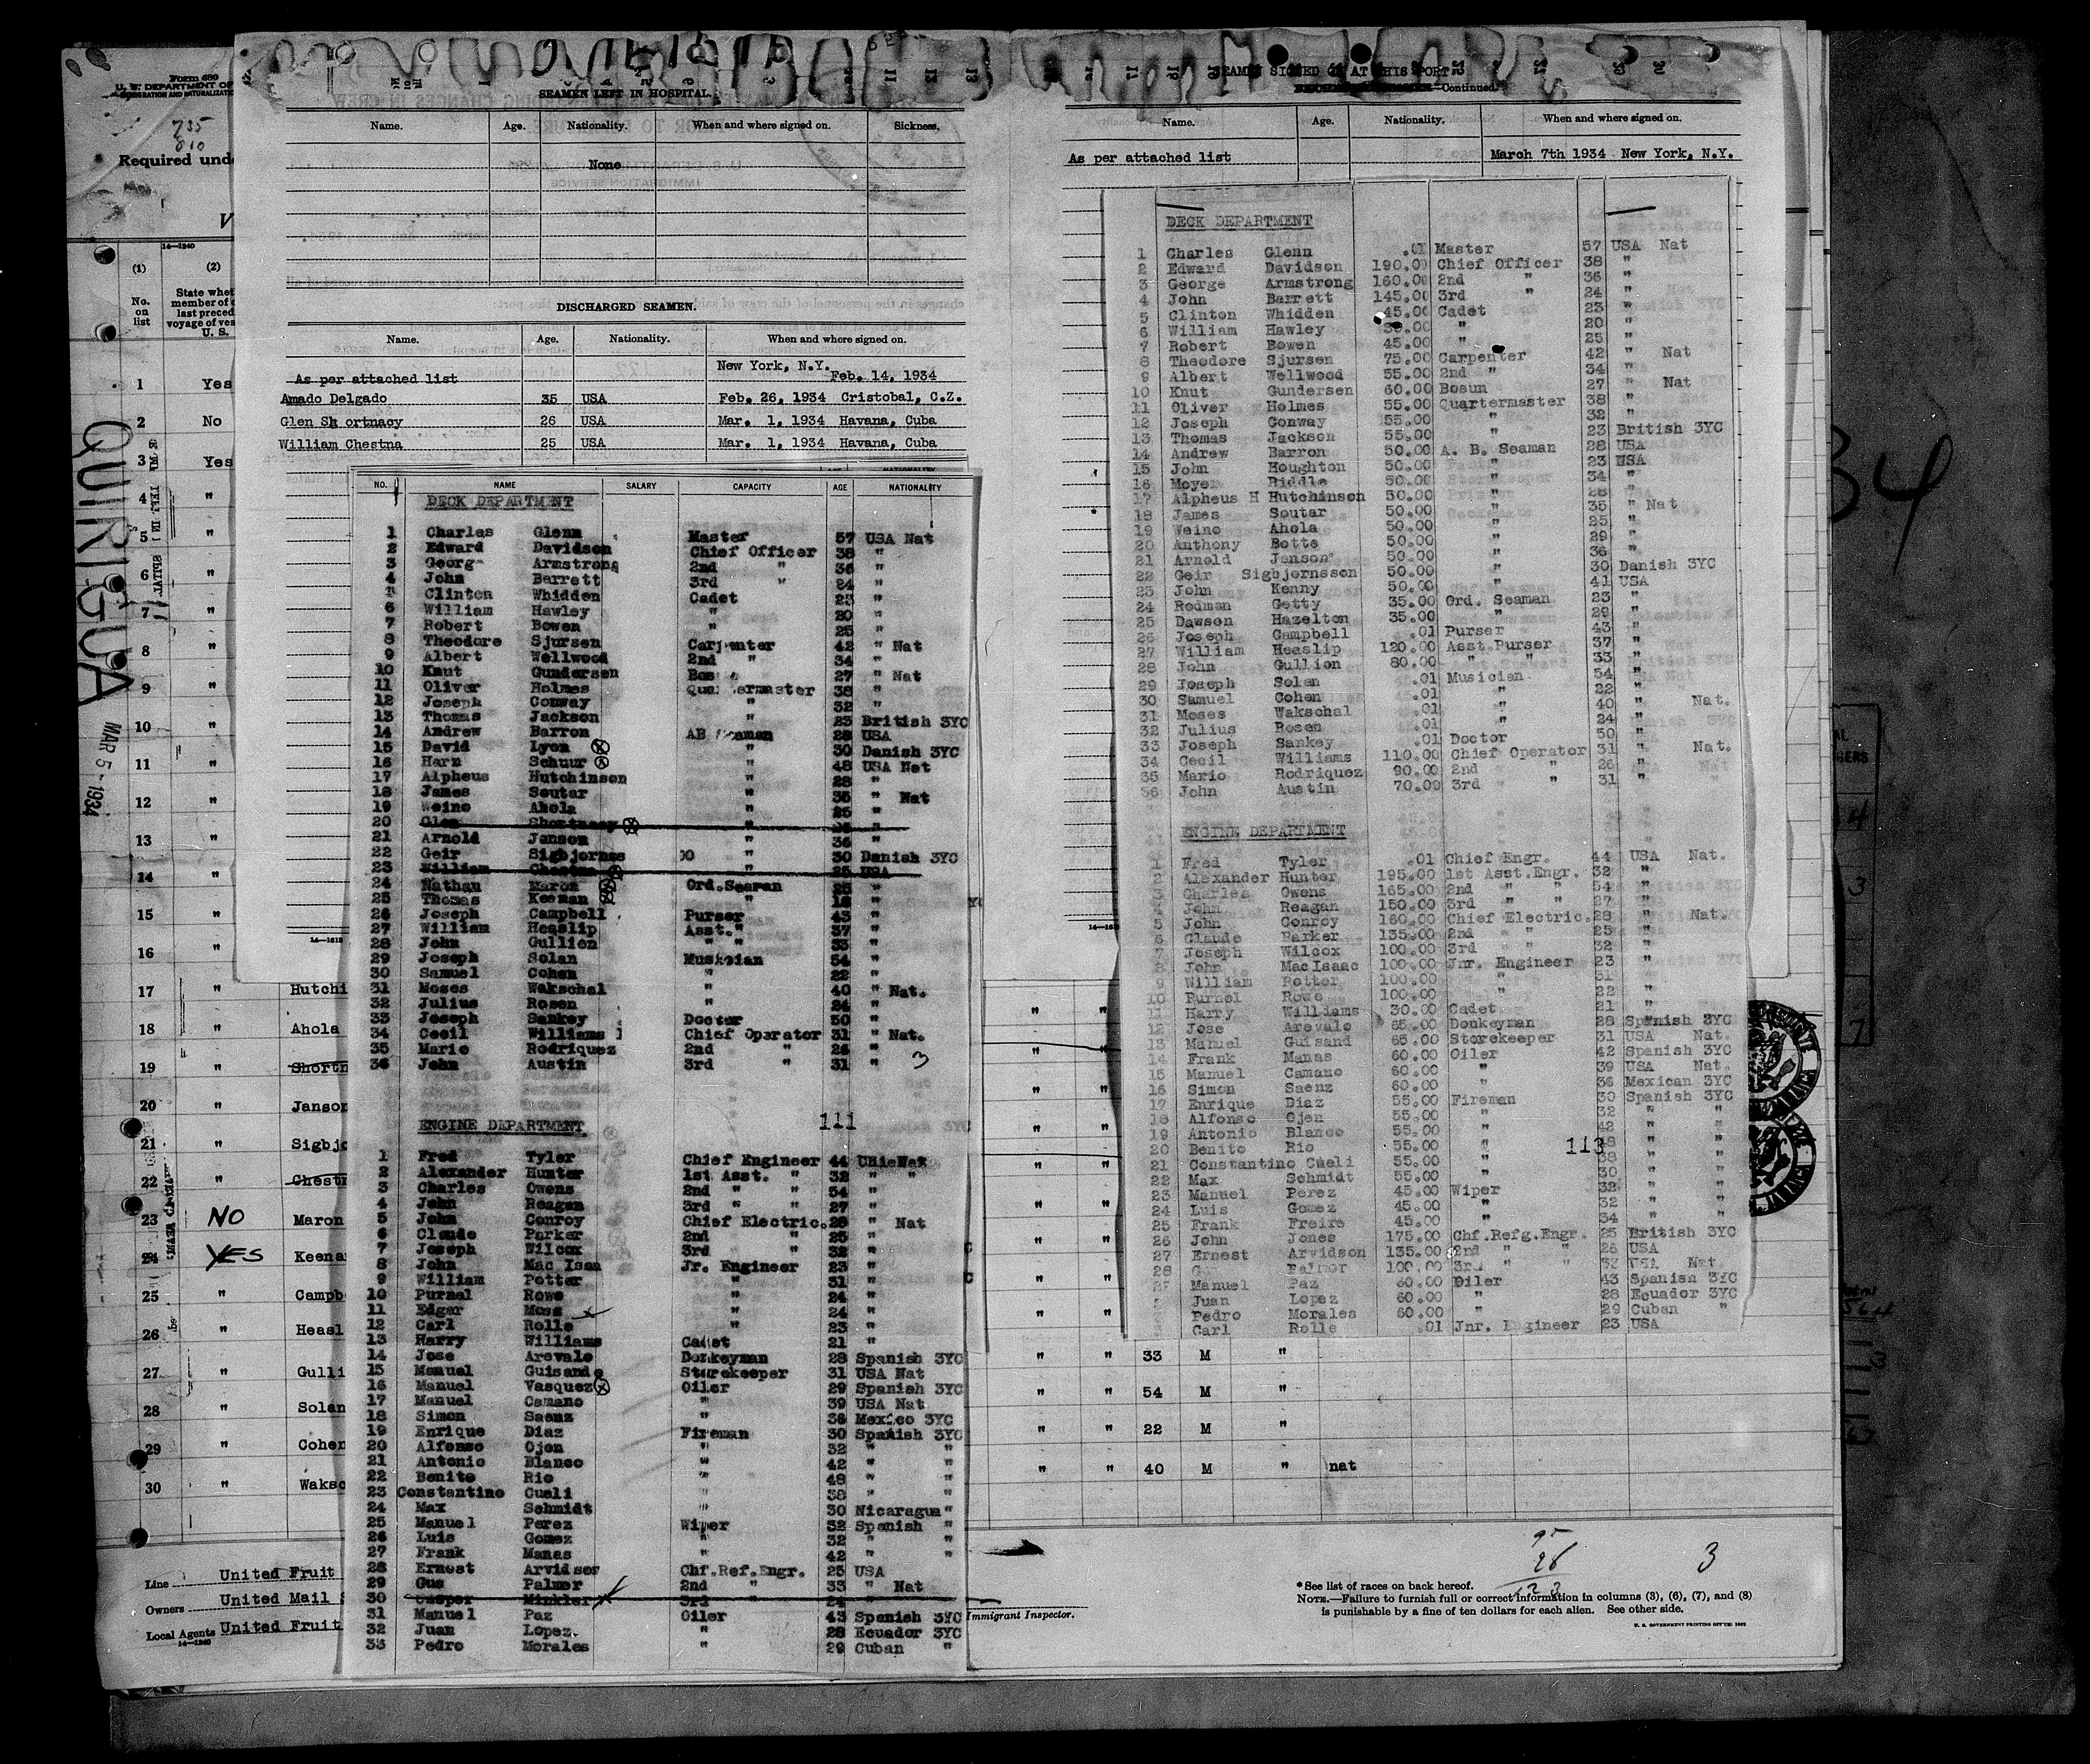 Form 689
U. S. DEPARTMENT OF
735
810
Required unde
14—1240
(1)
(2)
No. on list
State whet
member of
last preced
voyage of ves
U. S.
QUIRIGUA
MAR 5 - 1934
1 Yes
2 No
3 Yes
4 "
5 "
6 "
7 "
8 "
9 "
10 "
11 "
12 "
13 "
14 "
15 "
16 "
17 " Hutchi
18 " Ahola
19 " Shortn
20 " Janson
21 " Sigbjo
22 " Chestn
23 NO Maron
24 YES Keena
25 " Campb
26 " Heasl
27 " Gulli
28 " Solan
29 " Cohen
30 " Waksc
Line United Fruit
Owners United Mail S
Local Agents United Fruit
14—1240
SEAMEN LEFT IN HOSPITAL.
Name. Age. Nationality. When and where signed on. Sickness.
None
DISCHARGED SEAMEN.
Name. Age. Nationality. When and where signed on.
As per attached list New York, N.Y. Feb. 14, 1934
Amado Delgado 35 USA Feb. 26, 1934 Cristobal, C.Z.
Glen Sh ortnacy 26 USA Mar. 1, 1934 Havana, Cuba
William Chestna 25 USA Mar. 1, 1934 Havana, Cuba
NO. NAME SALARY CAPACITY AGE NATIONALITY
DECK DEPARTMENT
1 Charles Glenn Master 57 USA Nat
2 Edward Davidson Chief Officer 38 "
3 Georg Armstrong 2nd " 36 "
4 John Barrett 3rd " 24 "
5 Clinton Whidden Cadet 23 "
6 William Hawley " 20 "
7 Robert Bowen " 25 "
8 Theodore Sjursen Carpenter 42 " Nat
9 Albert Wellwood 2nd " 34 "
10 Knut Gundersen Bos 27 " Nat
11 Oliver Holmes Quartermaster 38 "
12 Joseph Conway " 32 "
13 Thomas Jackson " 23 British 3YC
14 Andrew Barron AB Seaman 28 USA
15 David Lyon " 30 Danish 3YC
16 Harn Schuur " 48 USA Nat
17 Alpheus Hutchinson " 28 "
18 James Soutar " 35 " Nat
19 Weino Ahola " 25 "
20 Glen Shortnacy " 26 "
21 Arnold Janson " 36 "
22 Geir Sigbjornss 00 " 30 Danish 3YC
23 William Chestna " 25 USA
24 Nathan Maron Ord.Seaman 25 "
25 Thomas Keenan " 18 "
26 Joseph Campbell Purser 43 "
27 William Heaslip Asst." 37 "
28 John Gullion " " 33 "
29 Joseph Solan Musician 54 "
30 Samuel Cohen " 22 "
31 Moses Wakschal " 40 " Nat.
32 Julius Rosen " 24 "
33 Joseph Sankey Doctor 50 "
34 Cecil Williams Chief Operator 31 " Nat.
35 Mario Rodriquez 2nd " 26 "
36 John Austin 3rd " 31 "
3
111
ENGINE DEPARTMENT
1 Fred Tyler Chief Engineer 44 USA Nat
2 Alexander Hunter 1st Asst. " 32 " "
3 Charles Owens 2nd " " 54 "
4 John Reagan 3rd " " 27 "
5 John Conroy Chief Electric. 28 " Nat
6 Claude Parker 2nd " 25 "
7 Joseph Wilcox 3rd " 32 "
8 John Mac Isaa Jr. Engineer 23 "
9 William Potter " 31 "
10 Purnel Rowe " 24 "
11 Edgar Moss " 24 "
12 Carl Rolle " 23 "
13 Harry Williams Cadet 21 "
14 Jose Arevalo Donkeyman 28 Spanish 3YC
15 Manuel Guisande Storekeeper 31 USA Nat
16 Manuel Vasquez Oiler 29 Spanish 3YC
17 Manuel Camano " 39 USA Nat
18 Simon Saenz " 36 Mexico 3YC
19 Enrique Diaz Fireman 30 Spanish 3YC
20 Alfonso Ojen " 32 " "
21 Antonio Blanco " 42 " "
22 Benito Rio " 48 " "
23 Constantino Cueli " 38 " "
24 Max Schmidt " 30 Nicaragua "
25 Manuel Perez Wiper 32 Spanish "
26 Luis Gomez " 32 " "
27 Frank Manas " 42 " "
28 Ernest Arvidson Chf.Ref.Engr. 25 USA
29 Gus Palmer 2nd " 33 " Nat
30 Casper Minkler 3rd " 24 "
31 Manuel Paz Oiler 43 Spanish 3YC
32 Juan Lopez. " 28 Ecuador 3YC
33 Pedro Morales " 29 Cuban "
SEAMEN SIGNED ON AT THIS PORT
Continued.
Name. Age. Nationality. When and where signed on.
As per attached list March 7th 1934 New York, N.Y.
DECK DEPARTMENT
1 Charles Glenn .01 Master 57 USA Nat
2 Edward Davidson 190.00 Chief Officer 38 "
3 George Armstrong 160.00 2nd " 36 "
4 John Barrett 145.00 3rd " 24 "
5 Clinton Whidden 45.00 Cadet 23 "
6 William Hawley 30.00 " 20 "
7 Robert Bowen 45.00 " 25 "
8 Theodore Sjursen 75.00 Carpenter 42 " Nat
9 Albert Wellwood 55.00 2nd " 34 "
10 Knut Gundersen 60.00 Bosun 27 " Nat
11 Oliver Holmes 55.00 Quartermaster 38 "
12 Joseph Conway 55.00 " 32 "
13 Thomas Jackson 55.00 " 23 British 3YC
14 Andrew Barron 50.00 A. B. Seaman 28 USA
15 John Houghton 50.00 " 23 USA
16 Moyer Riddle 50.00 " 34 "
17 Alpheus H Hutchinson 50.00 " 28 "
18 James Soutar 50.00 " 35 " Nat
19 Weino Ahola 50.00 " 25 "
20 Anthony Botte 50.00 " 29 "
21 Arnold Janson 50.00 " 36 "
22 Geir Sigbjornsson 50.00 " 30 Danish 3YC
23 John Kenny 50.00 " 41 USA
24 Redman Getty 35.00 Ord. Seaman 23 "
25 Dawson Hazelton 35.00 " 29 "
26 Joseph Campbell .01 Purser 43 "
27 William Heaslip 120.00 Asst.Purser 37 "
28 John Gullion 80.00 " " 33 "
29 Joseph Solan .01 Musician 54 "
30 Samuel Cohen .01 " 22 "
31 Moses Wakschal .01 " 40 " Nat.
32 Julius Rosen .01 " 24 "
33 Joseph Sankey .01 Doctor 50 "
34 Cecil Williams 110.00 Chief Operator 31 " Nat.
35 Mario Rodriquez 90.00 2nd " 26 "
36 John Austin 70.00 3rd " 31 "
ENGINE DEPARTMENT
1 Fred Tyler .01 Chief Engr. 44 USA Nat.
2 Alexander Hunter 195.00 1st Asst.Engr. 32 "
3 Charles Owens 165.00 2nd " " 54 "
4 John Reagan 150.00 3rd " " 27 "
5 John Conroy 160.00 Chief Electric. 28 " Nat.
6 Claude Parker 135.00 2nd " 25 "
7 Joseph Wilcox 100.00 3rd " 32 "
8 John MacIsaac 100.00 Jnr. Engineer 23 "
9 William Potter 100.00 " 31 "
10 Purnel Rowe 100.00 " 22 "
11 Harry Williams 30.00 Cadet 21 "
12 Jose Arevalo 65.00 Donkeyman 28 Spanish 3YC
13 Manuel Guisand 65.00 Storekeeper 31 USA Nat.
14 Frank Manas 60.00 Oiler 42 Spanish 3YC
15 Manuel Camano 60.00 " 39 USA Nat.
16 Simon Saenz 60.00 " 36 Mexican 3YC
17 Enrique Diaz 55.00 Fireman 30 Spanish 3YC
18 Alfonso Ojen 55.00 " 32 " "
19 Antonio Blanco 55.00 " 42 " "
20 Benito Rio 55.00 " 48 " "
113
21 Constantino Cueli 55.00 " 38 " "
22 Max Schmidt 55.00 " 30 " "
23 Manuel Perez 45.00 Wiper 32 " "
24 Luis Gomez 45.00 " 32 " "
25 Frank Freire 45.00 " 34 " "
26 John Jones 175.00 Chf.Refg.Engr. 25 British 3YC
27 Ernest Arvidson 135.00 2nd " " 25 USA
28 G Palmer 100.00 3rd " " 33 USA Nat
Manuel Paz 60.00 Oiler 43 Spanish 3YC
Juan Lopez 60.00 " 28 Ecuador 3YC
Pedro Morales 60.00 " 29 Cuban "
Carl Rolle .01 Jnr. Engineer 23 USA
" " 33 M "
" " 54 M "
" " 22 M "
" " 40 M " nat
34
Immigrant Inspector.
95
26
123
3
* See list of races on back hereof.
NOTE.—Failure to furnish full or correct information in columns (3), (6), (7), and (8)
is punishable by a fine of ten dollars for each alien. See other side.
U. S. GOVERNMENT PRINTING OFFICE: 1932